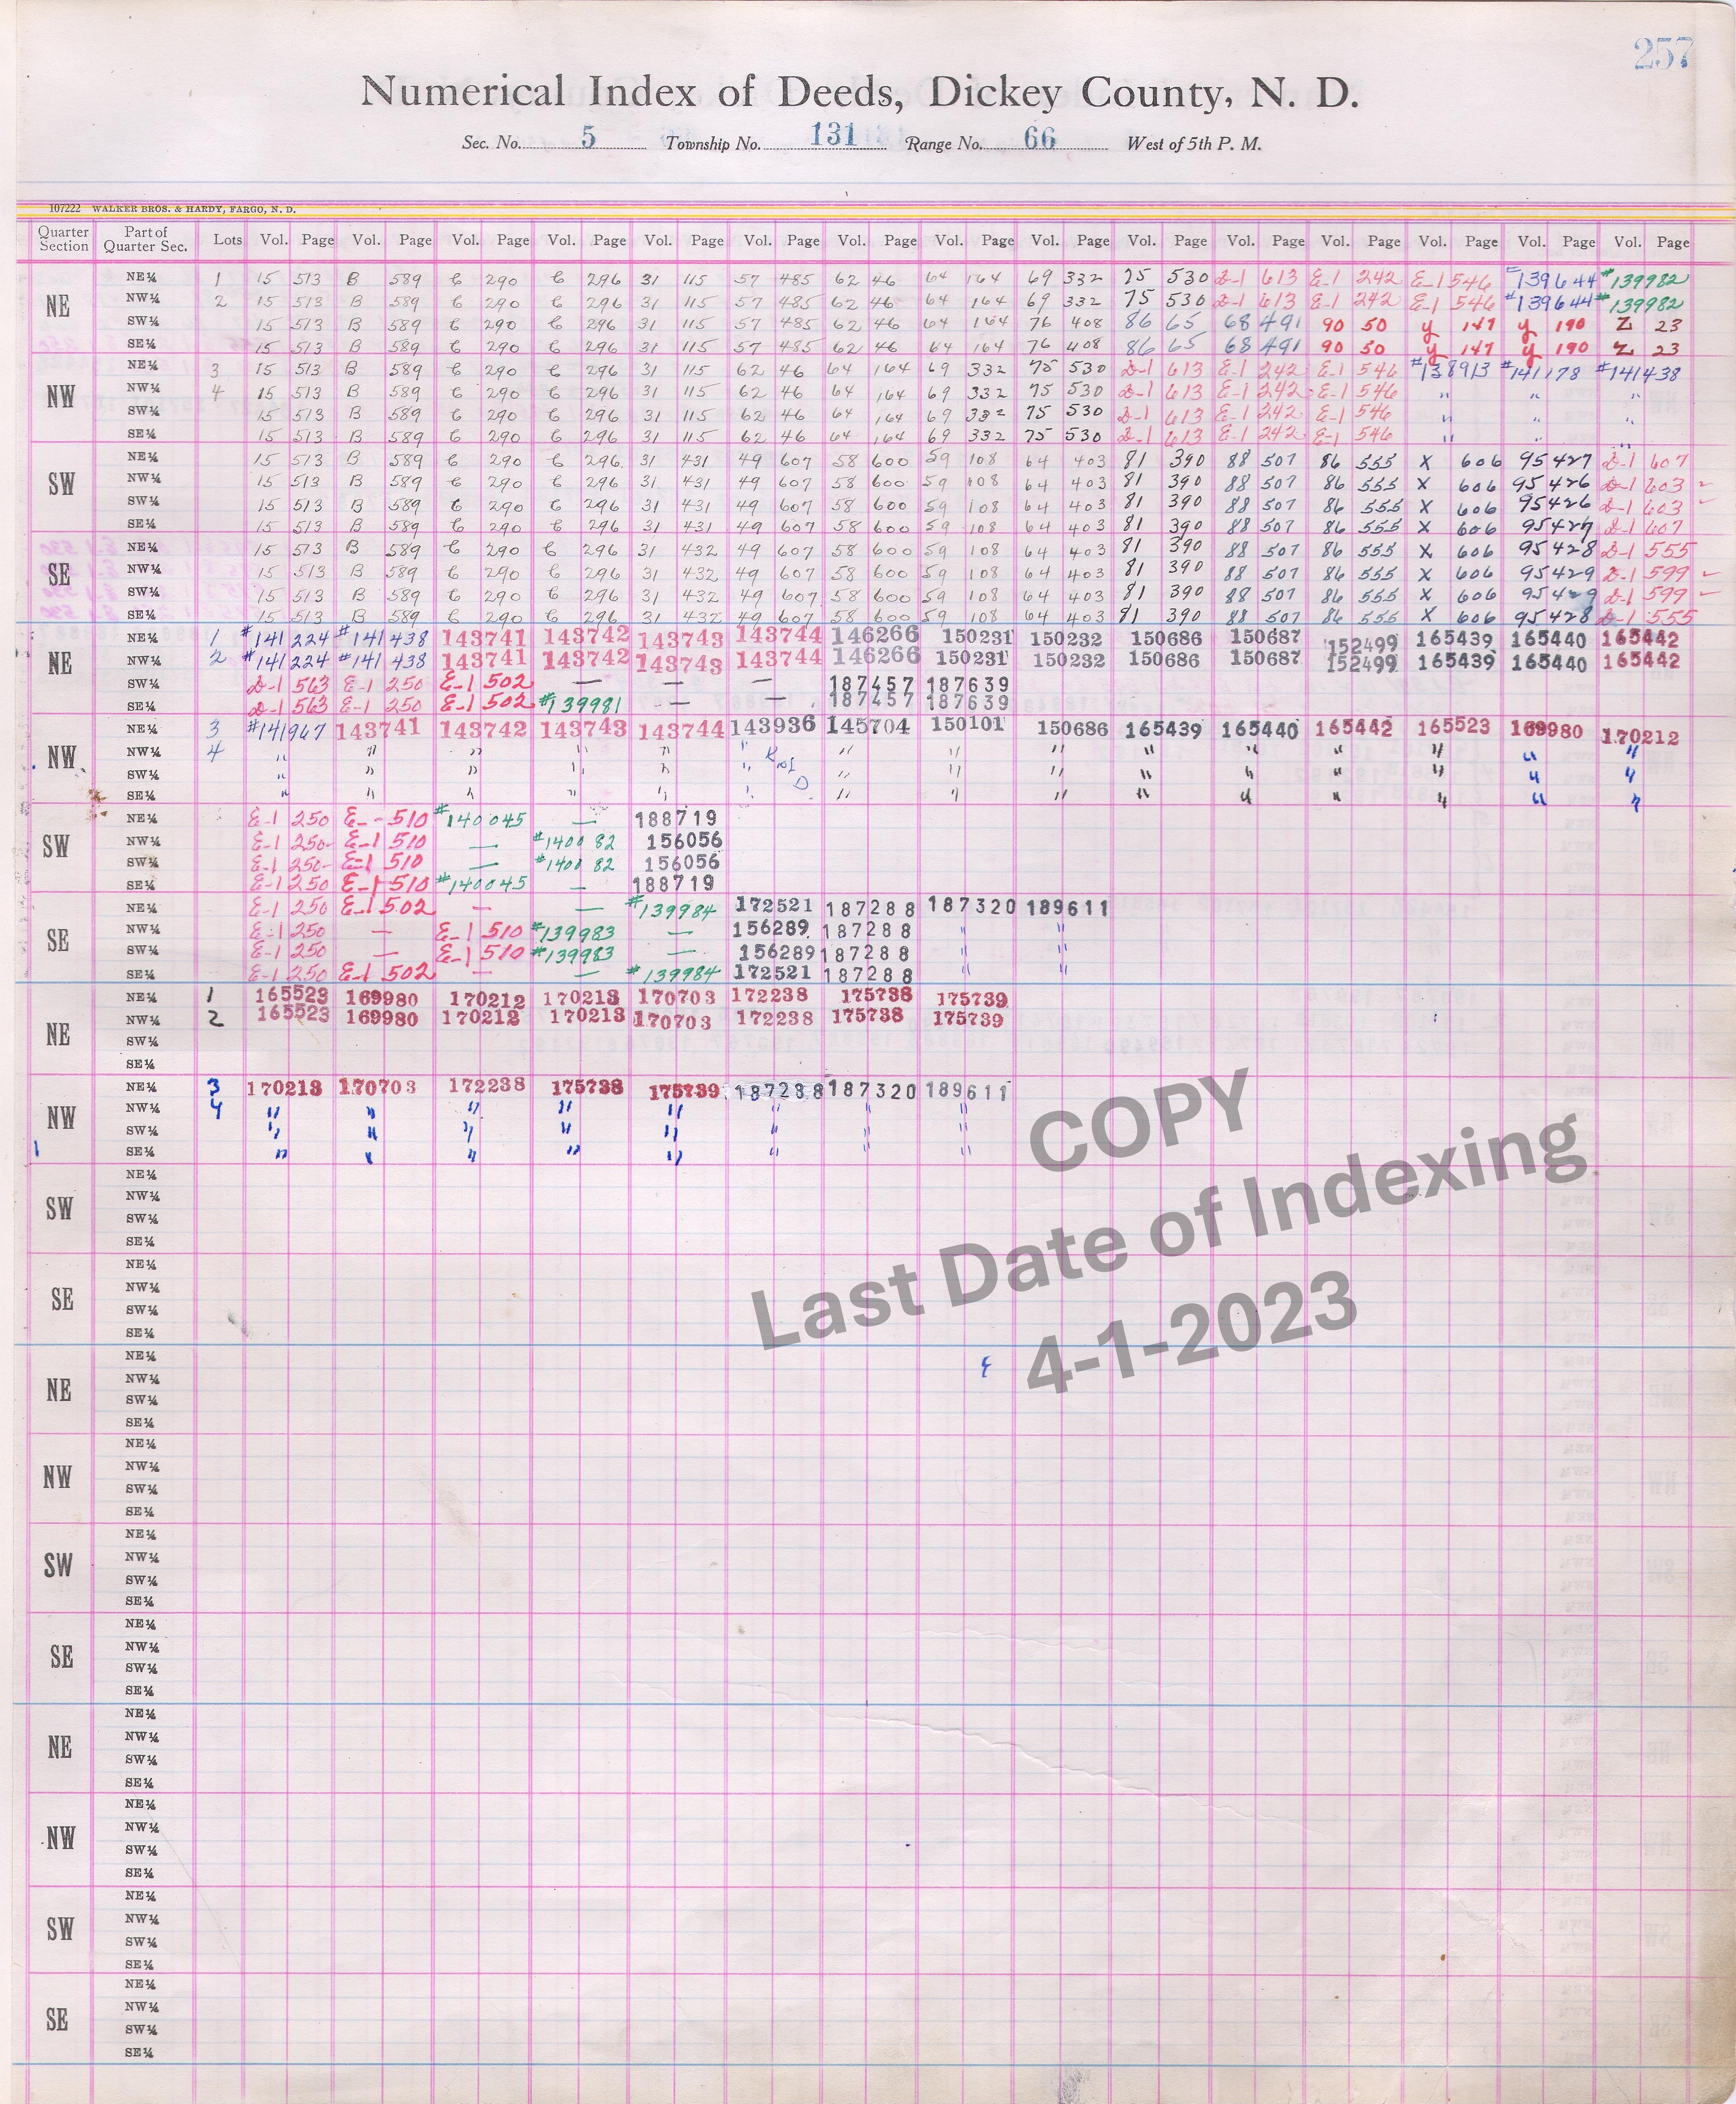 257
Numerical Index of Deeds, Dickey County, N. D.
Sec. No. 5 Township No. 131 Range No. 66 West of 5th P. M.
107222 WALKER BROS. & HARDY, FARGO, N. D.
Quarter Section Part of Quarter Sec. Lots Vol. Page Vol. Page Vol. Page Vol. Page Vol. Page Vol. Page Vol. Page Vol. Page Vol. Page Vol. Page Vol. Page Vol. Page Vol. Page Vol. Page Vol. Page
NE
NE¼ 1 15 513 B 589 C 290 C 296 31 115 57 485 62 46 64 164 69 332 75 530 D-1 613 E-1 242 E-1 546 #139644 #139982
NW¼ 2 15 513 B 589 C 290 C 296 31 115 57 485 62 46 64 164 69 332 75 530 D-1 613 E-1 242 E-1 546 #139644 #139982
SW¼ 15 513 B 589 C 290 C 296 31 115 57 485 62 46 64 164 76 408 86 65 68 491 90 50 y 147 y 190 Z 23
SE¼ 15 513 B 589 C 290 C 296 31 115 57 485 62 46 64 164 76 408 86 65 68 491 90 50 y 147 y 190 Z 23
NW
NE¼ 3 15 513 B 589 C 290 C 296 31 115 62 46 64 164 69 332 75 530 D-1 613 E-1 242 E-1 546 #138913 #141178 #141438
NW¼ 4 15 513 B 589 C 290 C 296 31 115 62 46 64 164 69 332 75 530 D-1 613 E-1 242 E-1 546 " " "
SW¼ 15 513 B 589 C 290 C 296 31 115 62 46 64 164 69 332 75 530 D-1 613 E-1 242 E-1 546 " " "
SE¼ 15 513 B 589 C 290 C 296 31 115 62 46 64 164 69 332 75 530 D-1 613 E-1 242 E-1 546 " " "
SW
NE¼ 15 513 B 589 C 290 C 296 31 431 49 607 58 600 59 108 64 403 81 390 88 507 86 555 X 606 95 427 D-1 607
NW¼ 15 513 B 589 C 290 C 296 31 431 49 607 58 600 59 108 64 403 81 390 88 507 86 555 X 606 95 426 D-1 603
SW¼ 15 513 B 589 C 290 C 296 31 431 49 607 58 600 59 108 64 403 81 390 88 507 86 555 X 606 95 426 D-1 603
SE¼ 15 513 B 589 C 290 C 296 31 431 49 607 58 600 59 108 64 403 81 390 88 507 86 555 X 606 95 427 D-1 607
SE
NE¼ 15 513 B 589 C 290 C 296 31 432 49 607 58 600 59 108 64 403 81 390 88 507 86 555 X 606 95 428 D-1 555
NW¼ 15 513 B 589 C 290 C 296 31 432 49 607 58 600 59 108 64 403 81 390 88 507 86 555 X 606 95 429 D-1 599
SW¼ 15 513 B 589 C 290 C 296 31 432 49 607 58 600 59 108 64 403 81 390 88 507 86 555 X 606 95 429 D-1 599
SE¼ 15 513 B 589 C 290 C 296 31 432 49 607 58 600 59 108 64 403 81 390 88 507 86 555 X 606 95 428 D-1 555
NE
NE¼ 1 #141224 #141438 143741 143742 143743 143744 146266 150231 150232 150686 150687 152499 165439 165440 165442
NW¼ 2 #141224 #141438 143741 143742 143743 143744 146266 150231 150232 150686 150687 152499 165439 165440 165442
SW¼ D-1 563 E-1 250 E-1 502 — — — 187457 187639
SE¼ D-1 563 E-1 250 E-1 502 #139981 — — 187457 187639
NW
NE¼ 3 #141967 143741 143742 143743 143744 143936 145704 150101 150686 165439 165440 165442 165523 169980 170212
NW¼ 4 " " " " " " " " " " " " " " "
SW¼ " " " " " " " " " " " " " " "
SE¼ " " " " " " " " " " " " " " "
SW
NE¼ E-1 250 E-- 510 #140045 — 188719
NW¼ E-1 250 E-1 510 — #140082 156056
SW¼ E-1 250 E-1 510 — #140082 156056
SE¼ E-1 250 E-1 510 #140045 — 188719
SE
NE¼ E-1 250 E-1 502 — — #139984 172521 187288 187320 189611
NW¼ E-1 250 — E-1 510 #139983 — 156289 187288 " "
SW¼ E-1 250 — E-1 510 #139983 — 156289 187288 " "
SE¼ E-1 250 E-1 502 — — #139984 172521 187288 " "
NE
NE¼ 1 165523 169980 170212 170213 170703 172238 175738 175739
NW¼ 2 165523 169980 170212 170213 170703 172238 175738 175739
SW¼
SE¼
NW
NE¼ 3 170213 170703 172238 175738 175739 187288 187320 189611
NW¼ 4 " " " " " " " "
SW¼ " " " " " " " "
SE¼ " " " " " " " "
SW
NE¼
NW¼
SW¼
SE¼
SE
NE¼
NW¼
SW¼
SE¼
NE
NE¼
NW¼
SW¼
SE¼
NW
NE¼
NW¼
SW¼
SE¼
SW
NE¼
NW¼
SW¼
SE¼
SE
NE¼
NW¼
SW¼
SE¼
NE
NE¼
NW¼
SW¼
SE¼
NW
NE¼
NW¼
SW¼
SE¼
SW
NE¼
NW¼
SW¼
SE¼
SE
NE¼
NW¼
SW¼
SE¼
COPY
Last Date of Indexing
4-1-2023